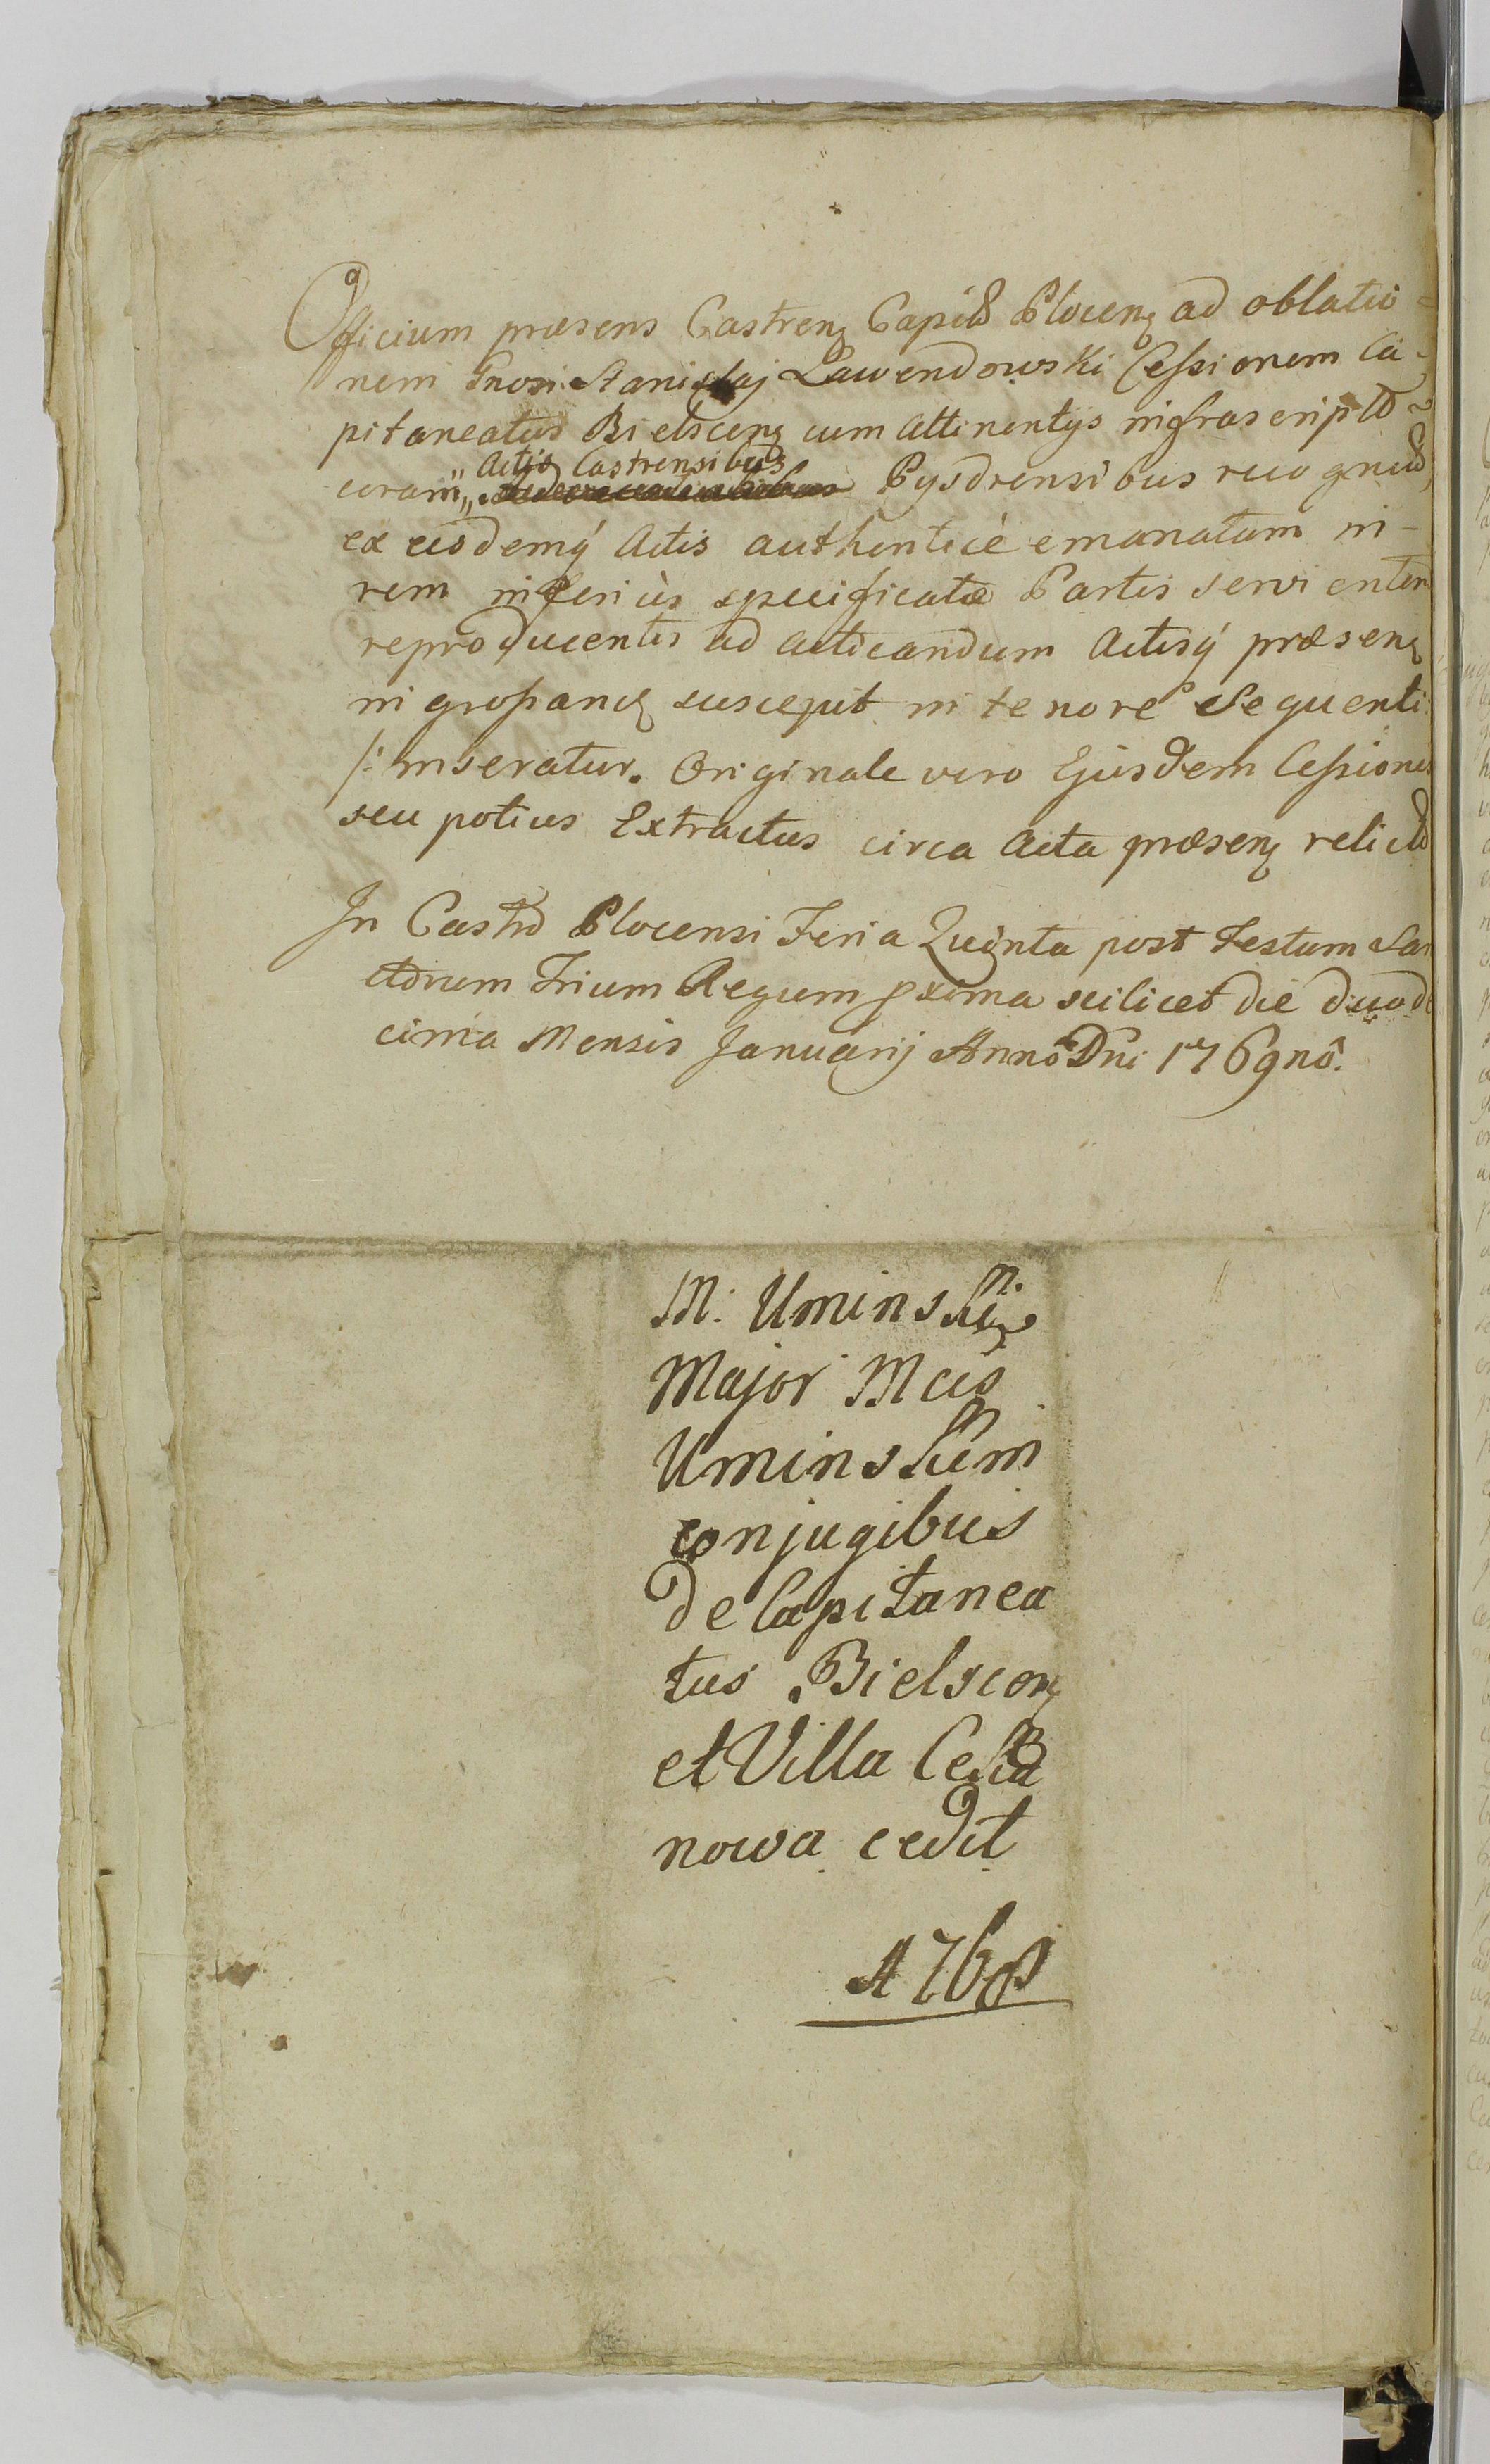 Officium præsens Castrenẽ Capitłd Plocenẽ ad oblatio=
nem Gnosi Stanislaj Lawendowski Cessionem Ca=
pitaneatus Bielscenẽ cum attinentijs infrascriptłd
coram Actis Castrensibus Pysdrensibus recognitłd,
ex eisdemq́ Actis authenticè emanatam in-
rem inferiùs specificatæ Partis servientem
reproducentis ad acticandum Actisq́ præsenẽ
ingrossandẽ suscepit in tenore Sequenti:
/: inseratur. Originale vero Ejusdem Cessionis
seu potius Extractus circa Acta præsenẽ relictłd
In Castro Plocensi Feria Quinta post Festum San
ctorum Trium Regum pxima scilicet die duode
cima Mensis Januarij Annô Dni 1769nô.
M: Uminski
Major Mcis
Uminskim
conjugibus
de Capitanea
tus Bielscenẽ
et Villa Cekia
nowa cedit
1768